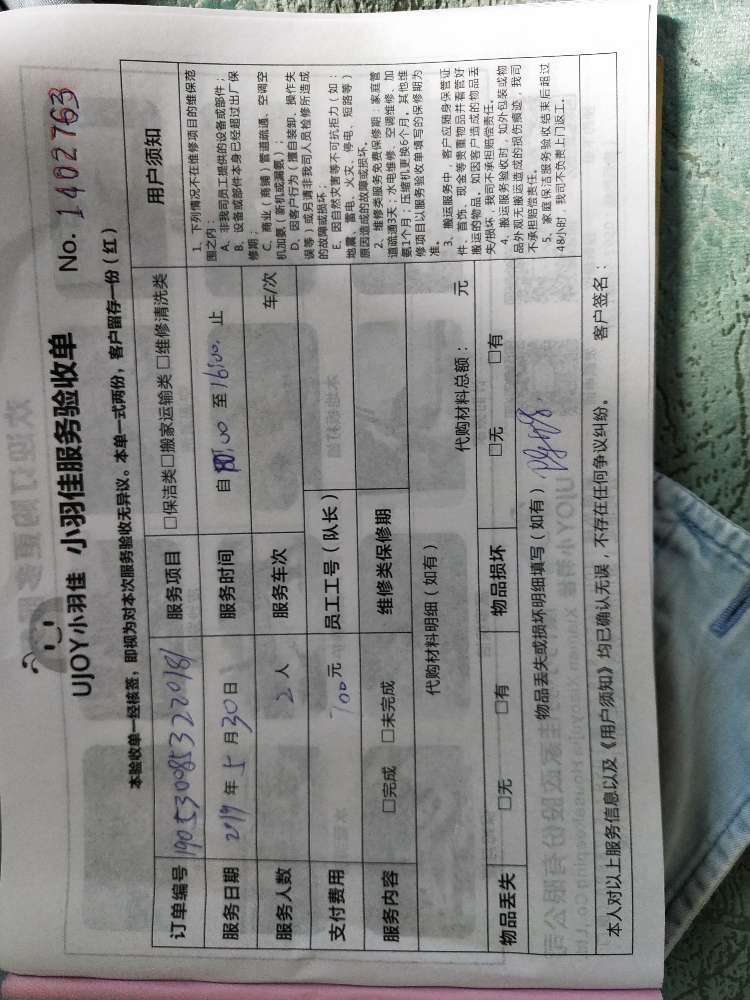 UJOY小羽佳 小羽佳服务验收单 No. 1402763
本验收单一经核签，即视为对本次服务验收无异议。本单一式两份，客户留存一份（红）
订单编号 1905309853220181 服务项目 □保洁类□搬家运输类 □维修清洗类
服务日期 2019 年 5 月 30 日 服务时间 自 :00 至 16:00. 止
服务人数 2 人 服务车次 车/次
支付费用 700 元 员工工号（队长）
服务内容 □完成 □未完成 维修类保修期
代购材料明细（如有） 代购材料总额： 元
物品丢失 □无 □有 物品损坏 □无 □有
物品丢失或损坏明细填写（如有）
用户须知
1、下列情况不在维修项目的维保范
围之内：
A、非我司员工提供的设备或部件；
B、设备或部件本身已经超过出厂保
修期；
C、商业（商铺）管道疏通、空调空
机加氨（新机或漏氨）；
D、因客户行为（擅自装卸、操作失
误等）或另请非我司人员检修所造成
的故障或损坏；
E、因自然灾害等不可抗拒力（如：
地震、雷电、火灾、停电、短路等）
原因造成的故障或损坏。
2、维修类服务免费保修期：家庭管
道疏通3天；水电维修、空调维修、加
氨1个月；压缩机更换6个月。其他维
修项目以服务验收单填写的保修期为
准。
3、搬运服务中，客户应随身保管证
件、首饰、现金等贵重物品并看管好
搬运的物品，如因客户造成的物品丢
失/损坏，我司不承担赔偿责任。
4、搬运服务验收时，如外包装或物
品外观无搬运造成的损伤痕迹，我司
不承担赔偿责任。
5、家庭保洁服务验收结束后超过
48小时，我司不负责上门返工。
本人对以上服务信息以及《用户须知》均已确认无误，不存在任何争议纠纷。 客户签名：